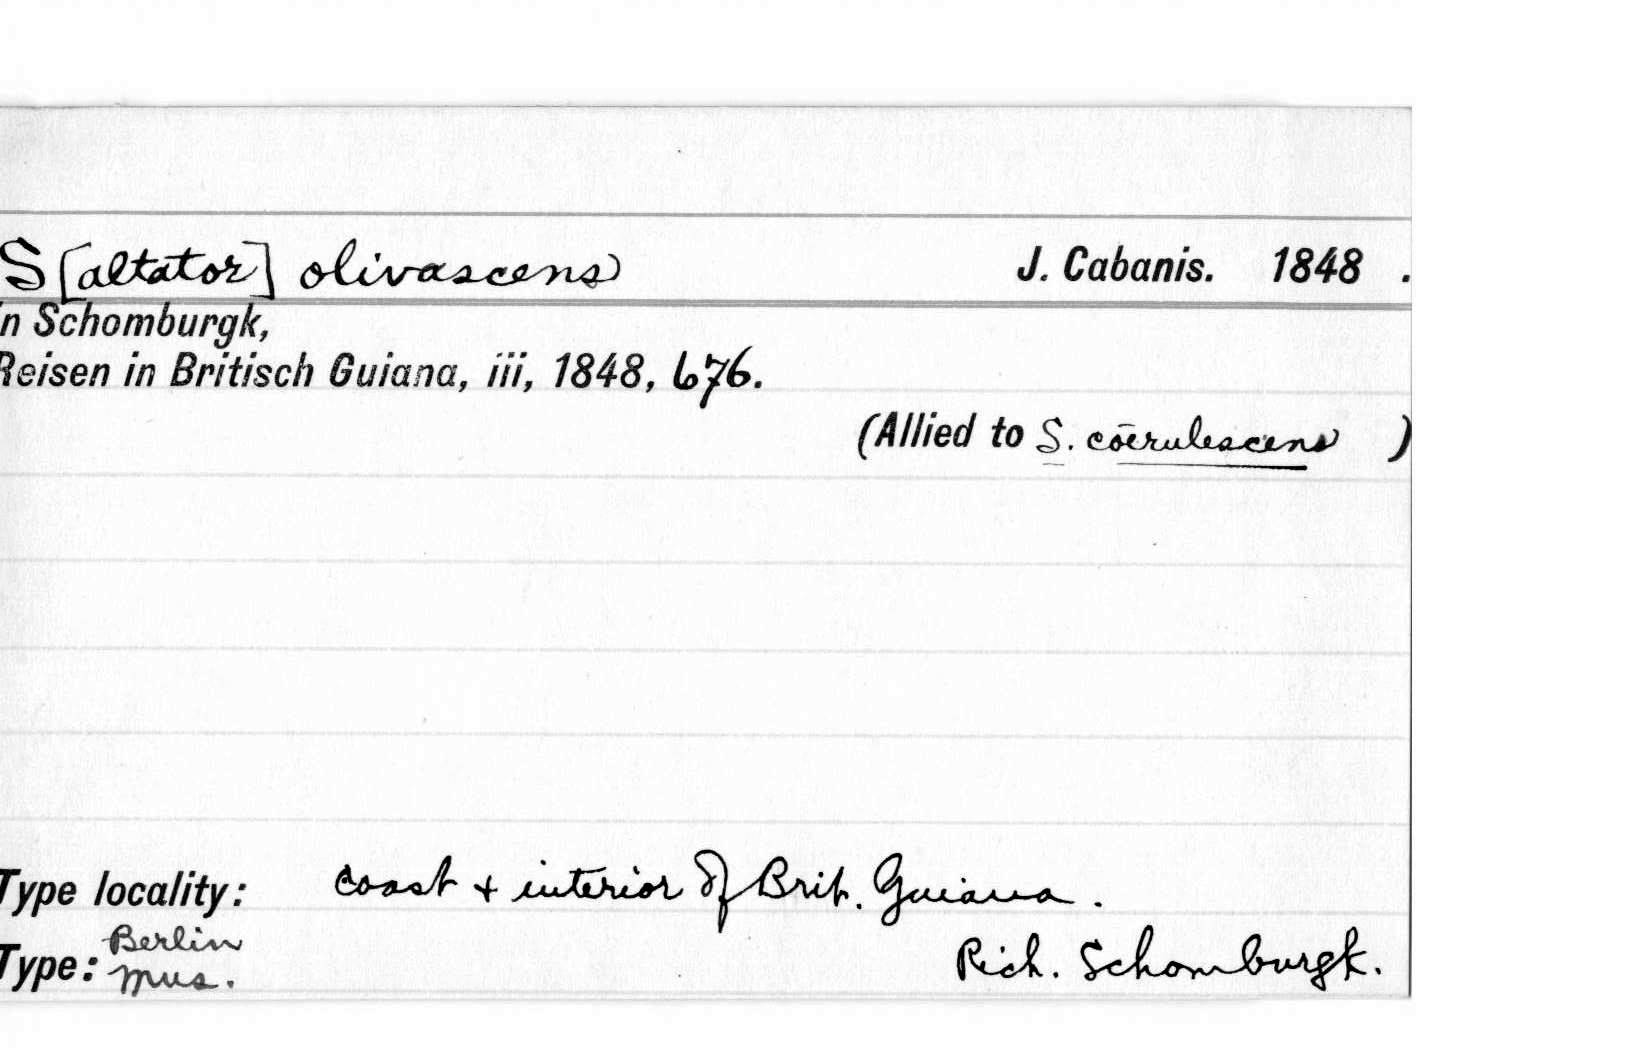 S[altator] olivascens J. Cabanis. 1848 .
n Schomburgk,
Reisen in Britisch Guiana, iii, 1848, 676.
(Allied to S. cōerulescens )
Type locality: coast + interior of Brit. Guiana .
Berlin
Type: Mus. Rich. Schomburgk.